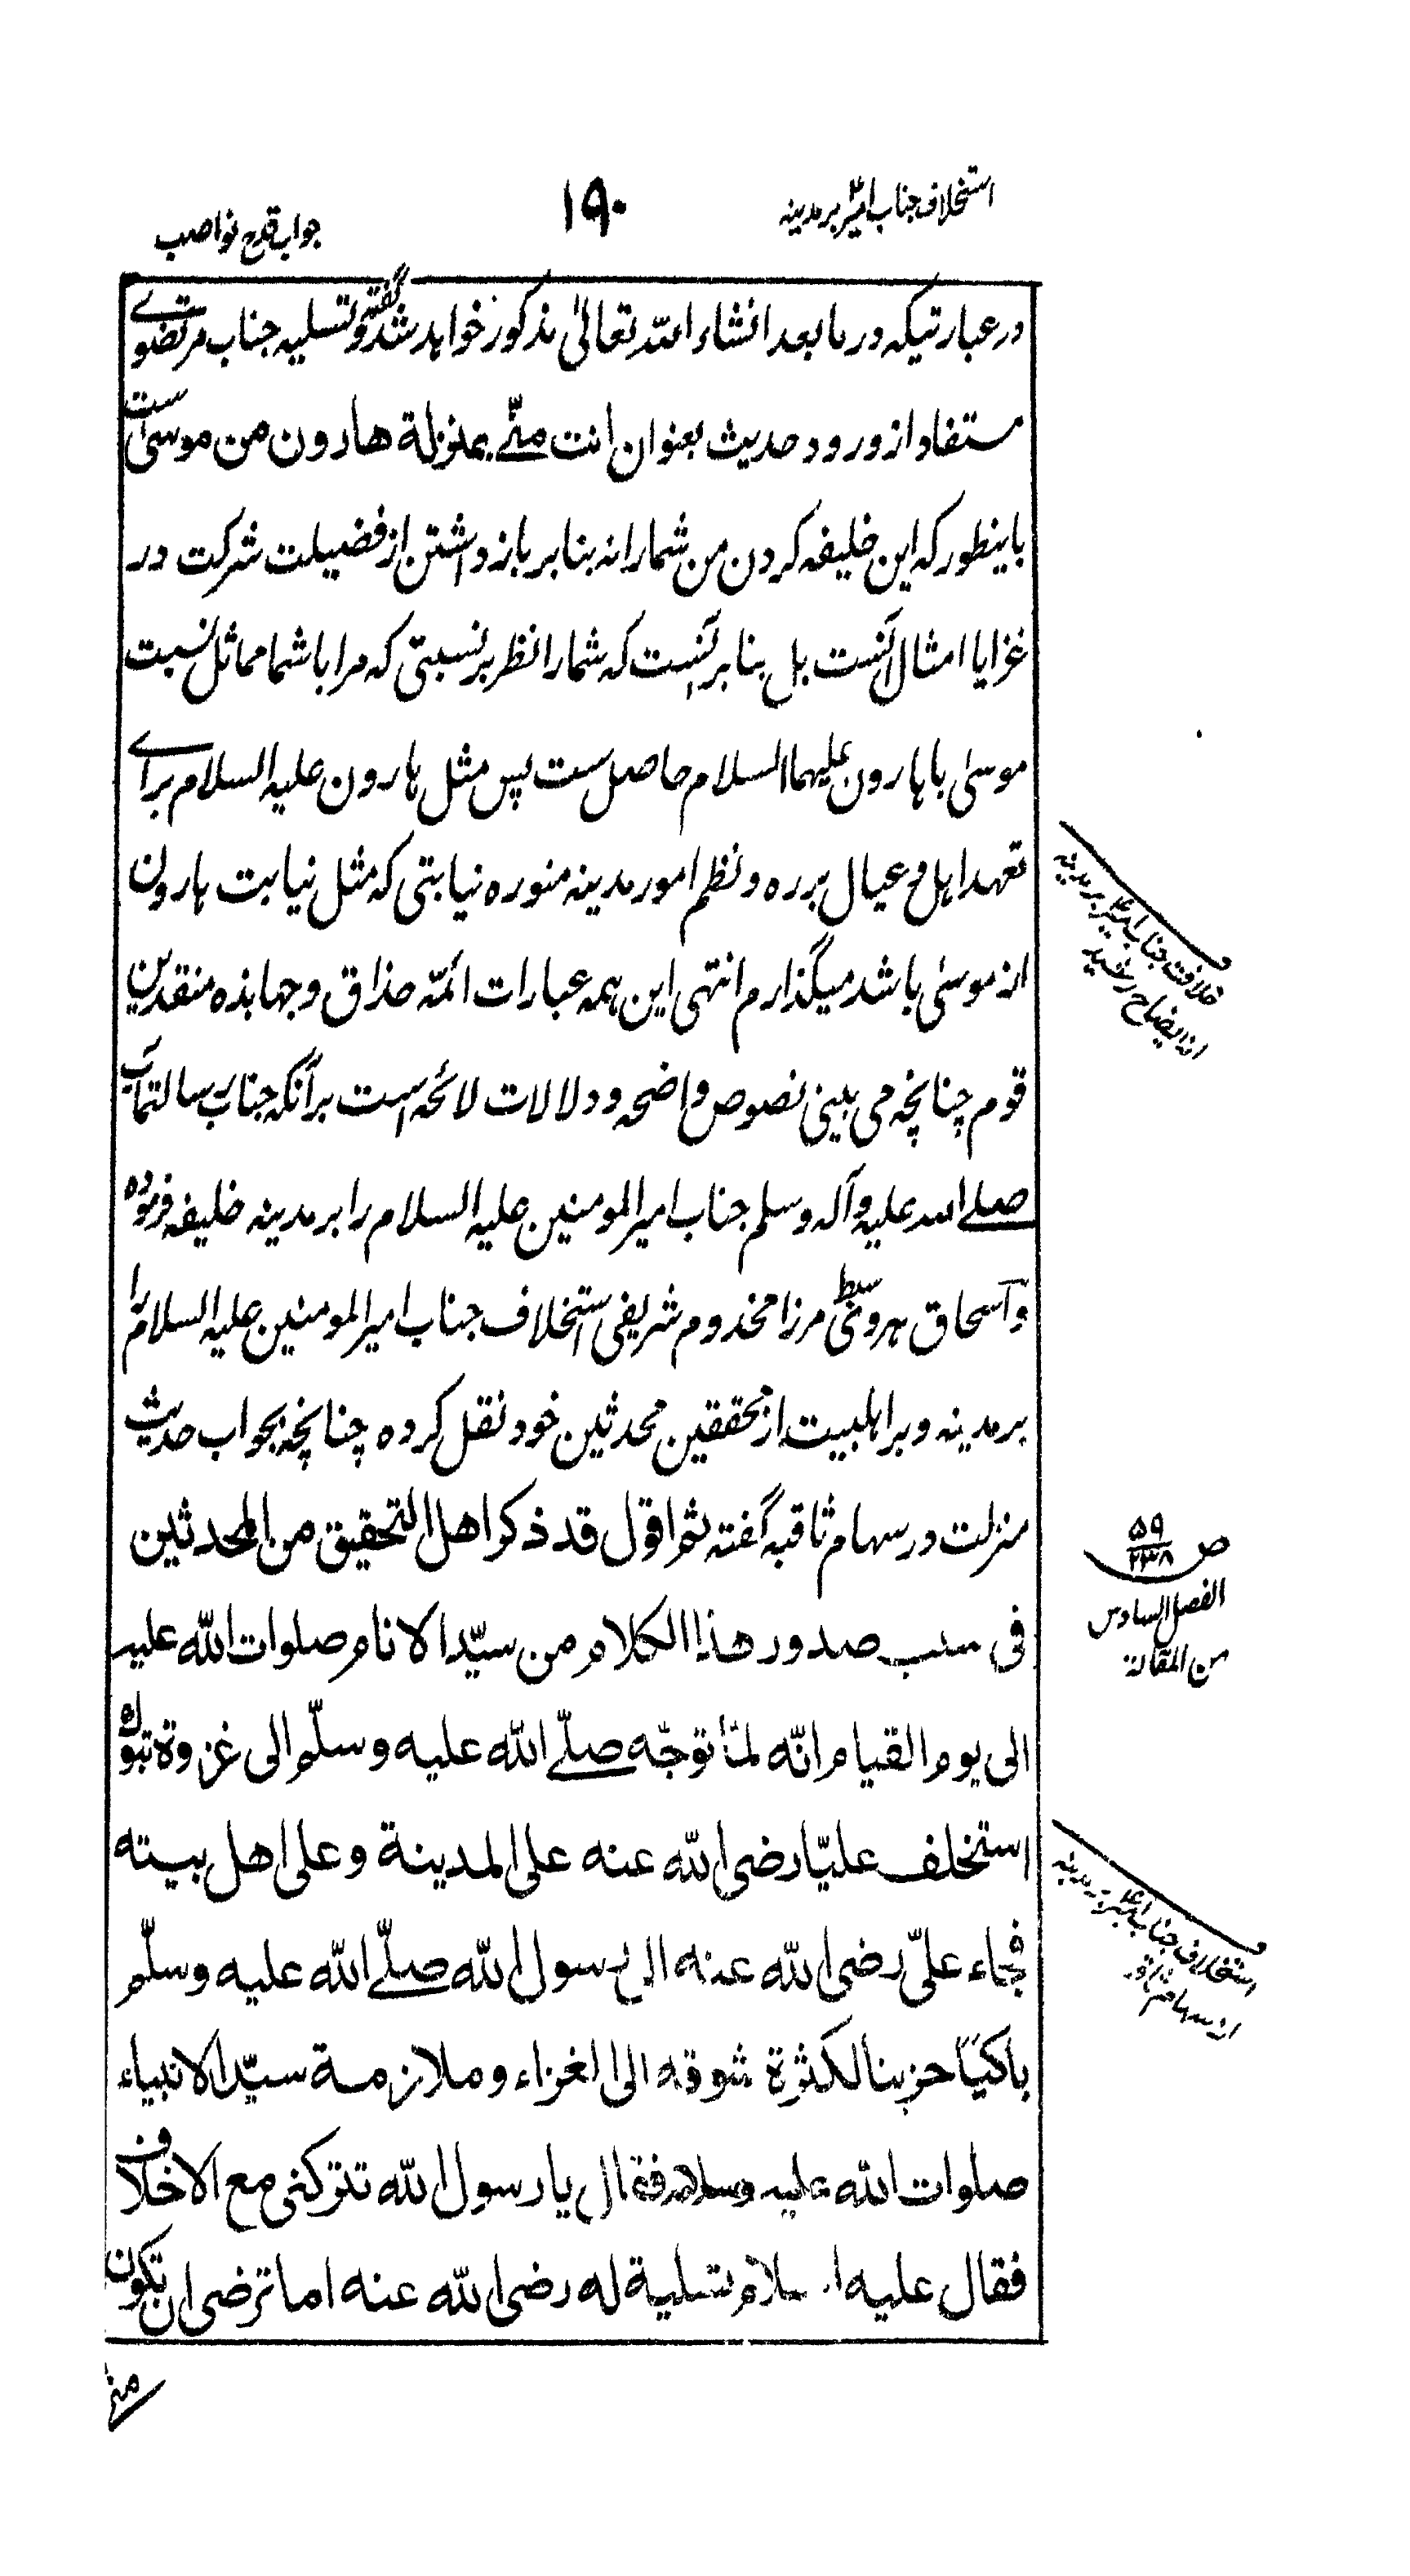 استخلاف جناب امیرؑ بر مدینه
۱۹۰
جواب قدح نواصب
در عبارتیکه در ما بعد انشاء الله تعالیٰ مذکور خواهد شد گفته و تسلیه جناب مرتضوے
مستفاد از ورود حدیث بعنوان انت منّے بمنزلة هارون من موسیٰ است
باینطور که این خلیفه کردن من شما را نه بنا بر باز داشتن از فضیلت شرکت در
غزایا امثال آنست بل بنا بر آنست که شما را نظر بر نسبتی که مرا با شما مماثل نسبت
موسیٰ با هارون علیهما السلام حاصل ست پس مثل هارون علیه السلام براے
تعهد اهل و عیال برره و نظم امور مدینه منوره نیابتی که مثل نیابت هارون
از موسیٰ باشد میگذارم انتهی این همه عبارات ائمّه حذاق و جهابذه منقدین
قوم چنانچه می بینی نصوص واضحه و دلالات لائحه است بر آنکه جناب رسالتمآب
صلے الله علیه و آله و سلم جناب امیر المومنین علیه السلام را بر مدینه خلیفه فرموده
و اسحاق هروی سبط مرزا مخدوم شریفی استخلاف جناب امیر المومنین علیه السلام را
بر مدینه و بر اهلبیت از محققین محدثین خود نقل کرده چنانچه بجواب حدیث
منزلت در سهام ثاقبه گفته ثم اقول قد ذکر اهل التحقیق من المحدثین
فی سبب صدور هذا الکلام من سیّد الانام صلوات الله علیه
الی یوم القیام انّه لمّا توجّه صلّے الله علیه وسلّم الی غزوة تبوک
استخلف علیّا رضی الله عنه علی المدینة وعلی اهل بیته
فجاء علیّ رضی الله عنه الی رسول الله صلّے الله علیه وسلّم
باکیًا حزینا لکثرة شوقه الی الغزاء وملازمة سیّد الانبیاء
صلوات الله علیه وسلامه فقال یا رسول الله تترکنی مع الاخلاف
فقال علیه السلام تسلیة له رضی الله عنه اما ترضی ان تکون
منّے
خلافت جناب امیرؑ بر مدینه
از ایضاح رشید
ص ۵۹/۲۳۸
الفصل السادس
من المقالة
استخلاف جناب امیرؑ بر مدینه
از سهام ثاقبه